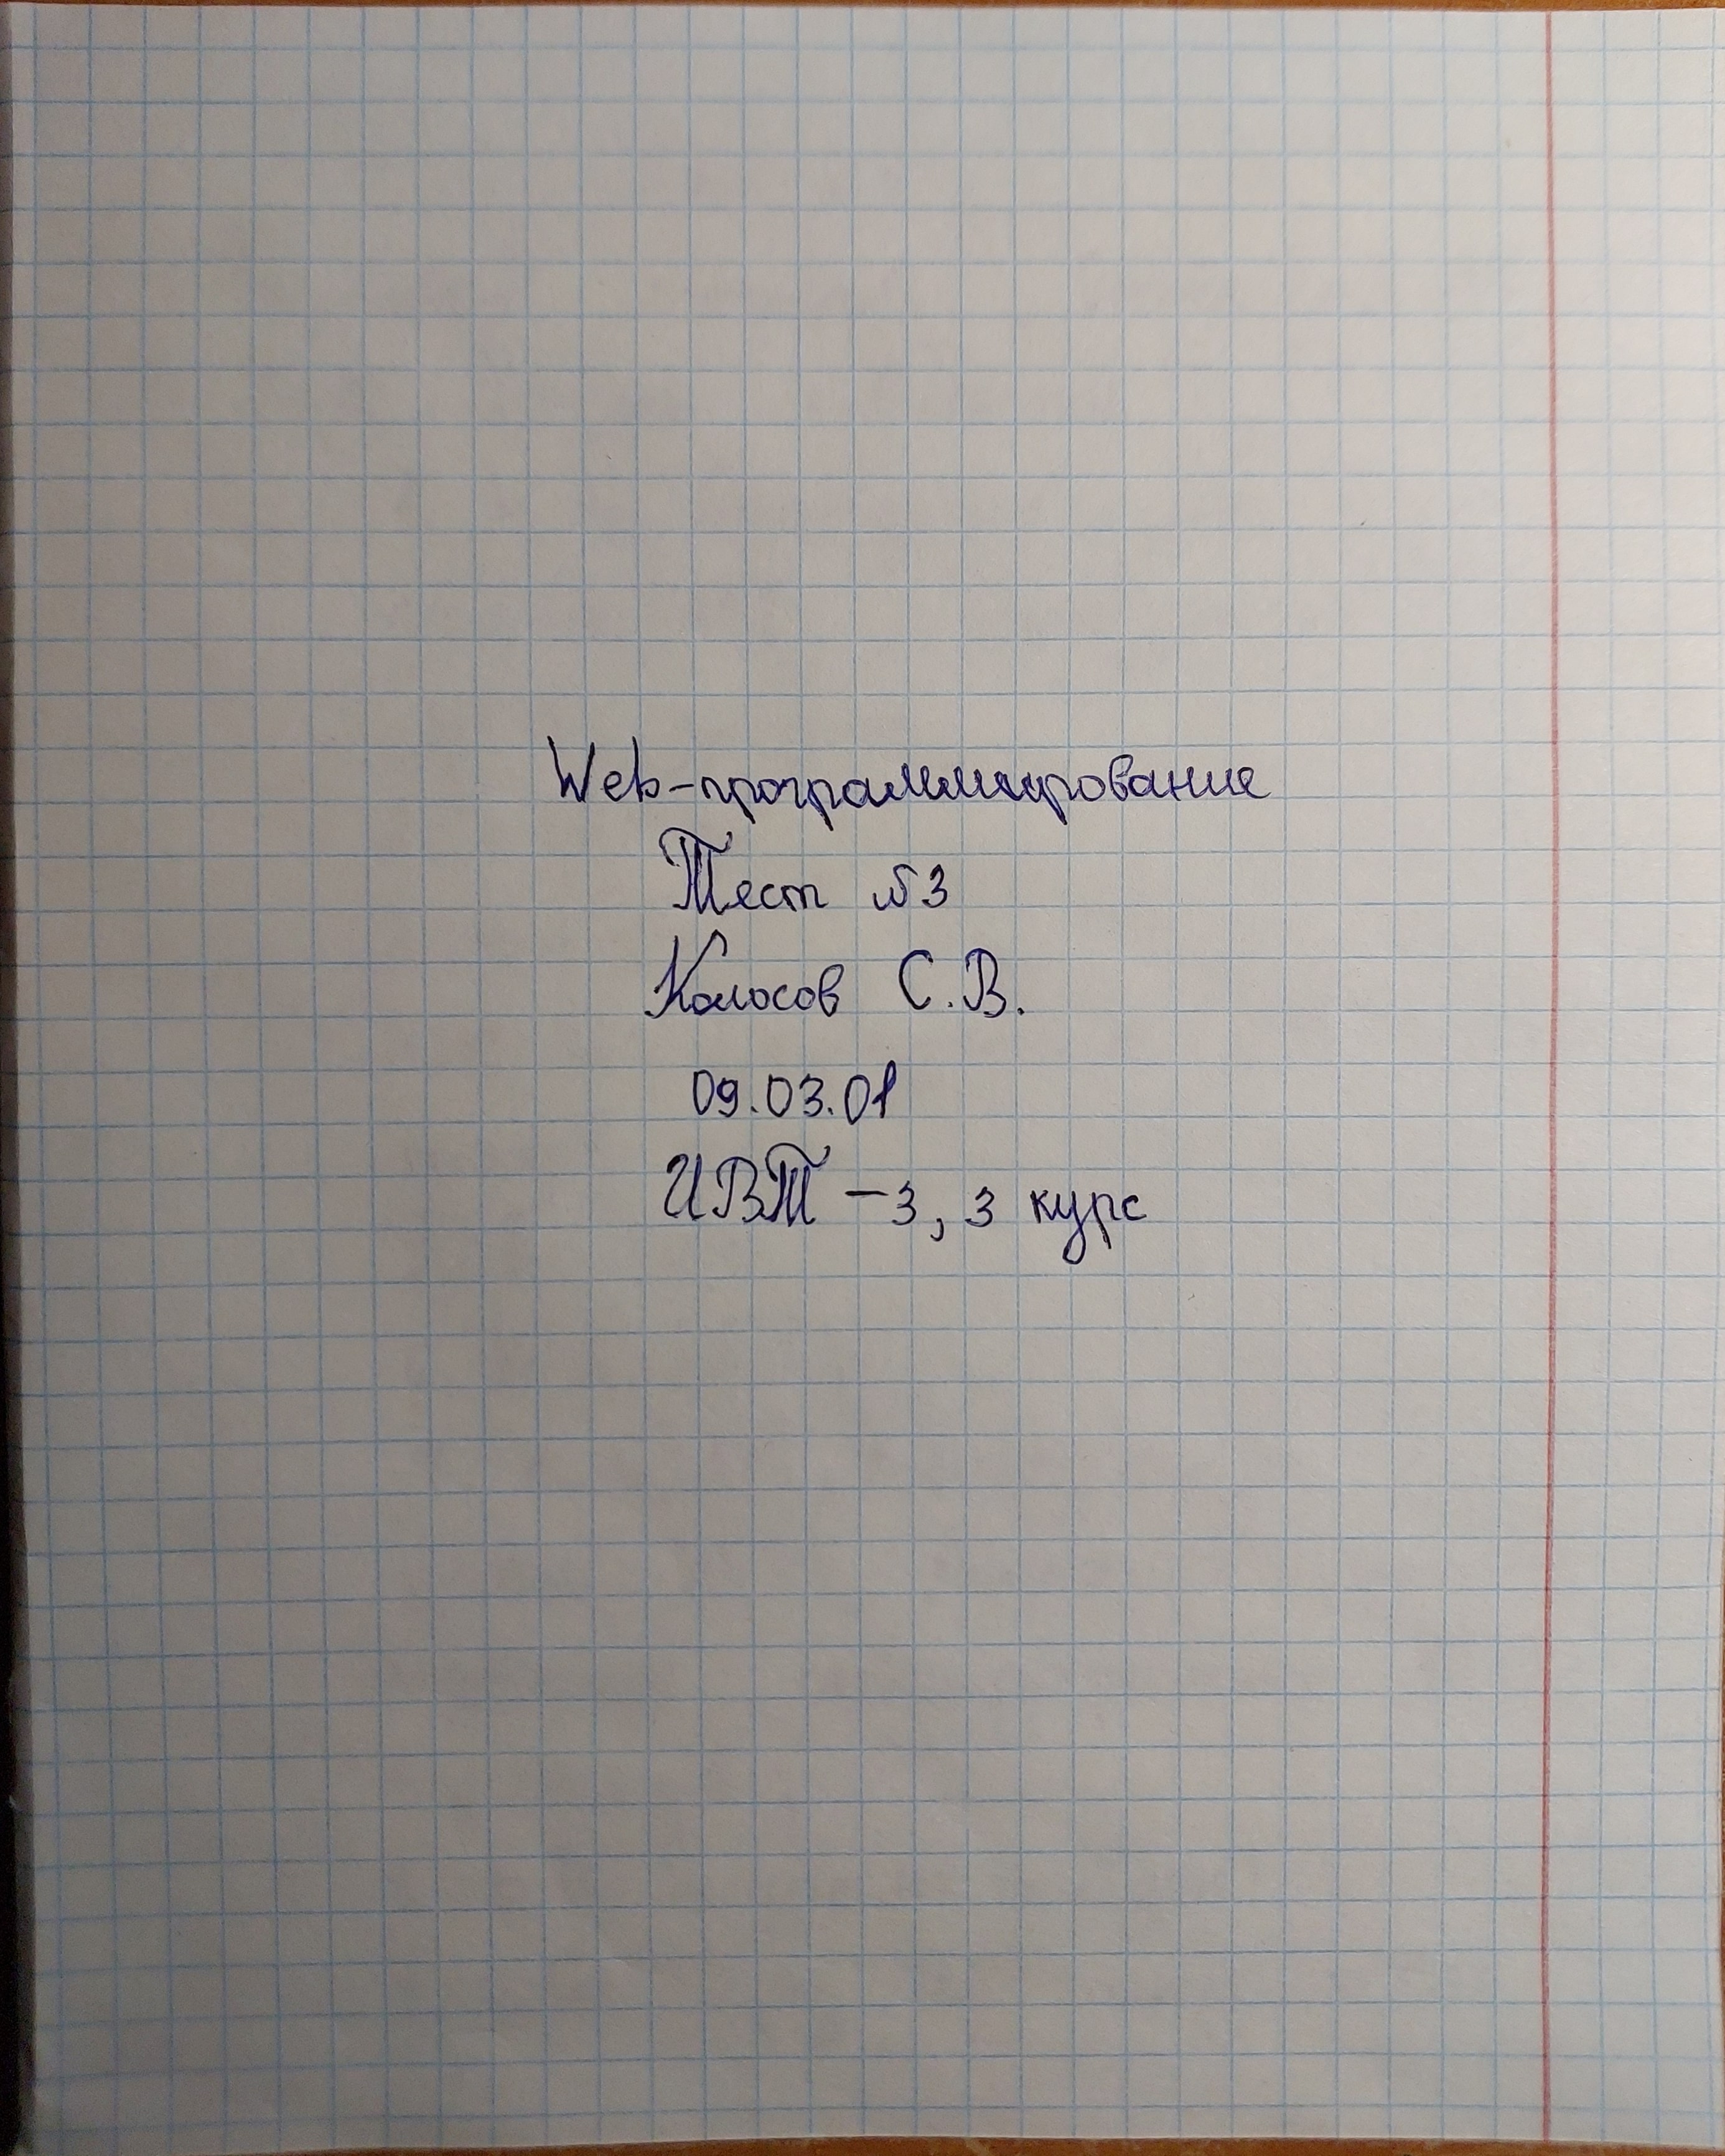 Web-программирование
Тест №3
Колосов С.В.
09.03.01
ИВТ-3, 3 курс